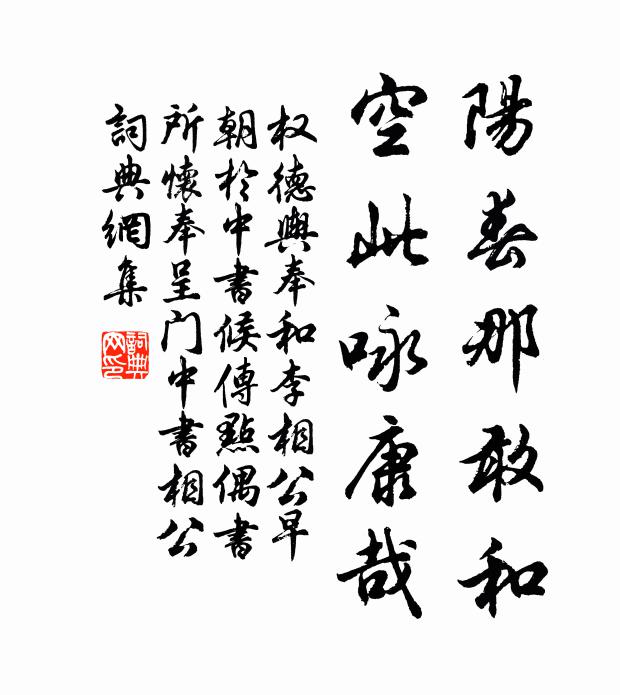 陽春那敢和
空此咏康哉
权德輿奉和李相公早
朝於中書候傳點偶書
所懷奉呈门中書相公
詞典網集
詞典
网印